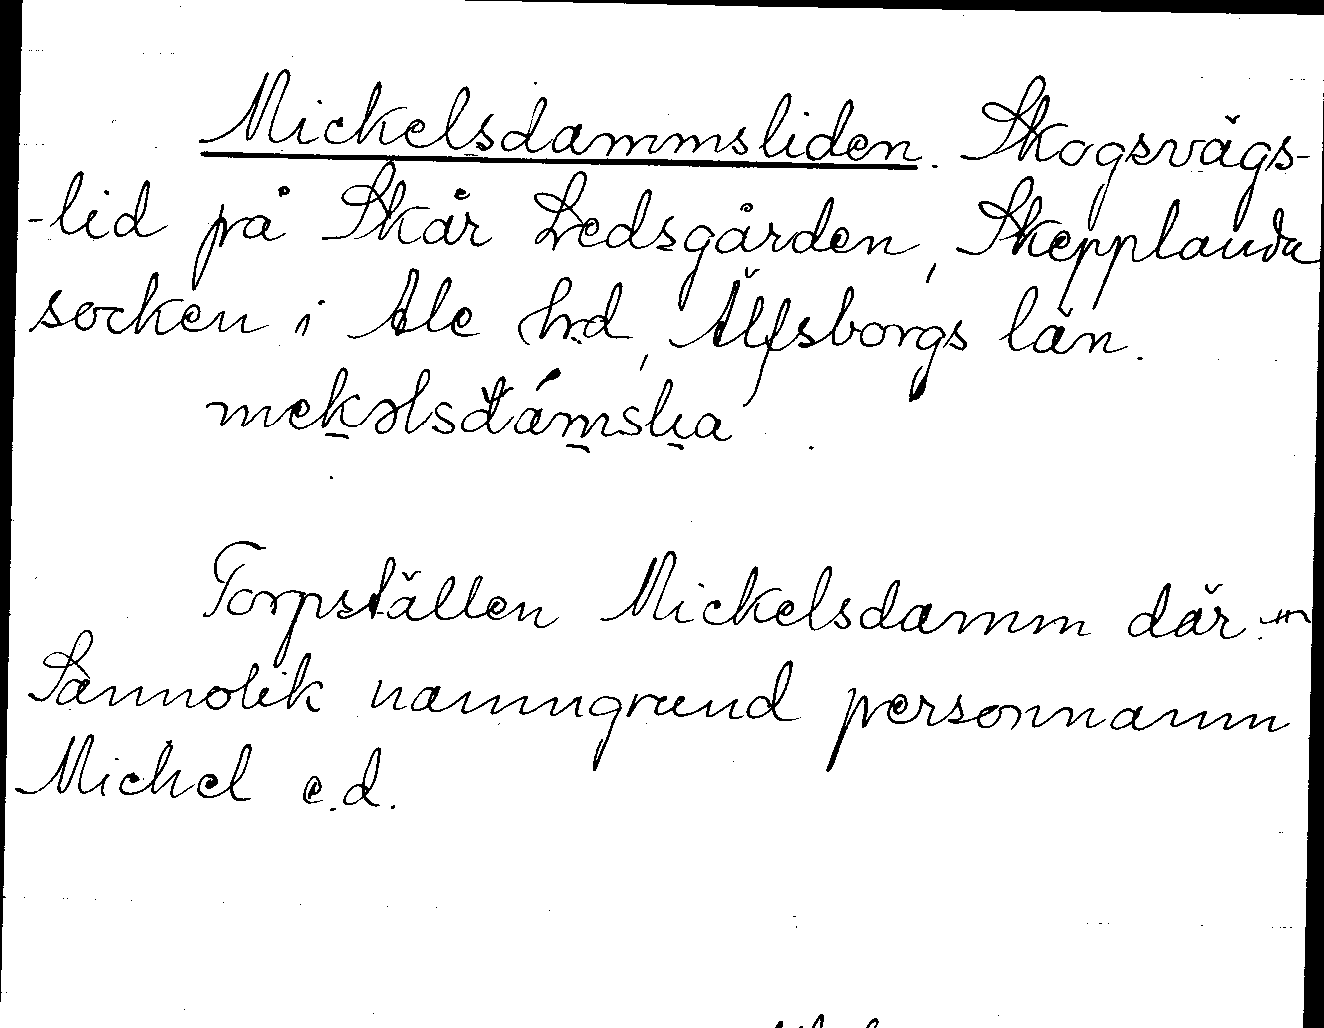 Mickelsdammsliden. Skogsvägs-
-lid på Skår Ledsgården, Skepplanda
socken i Ale hd, Älfsborgs län.
mekəlsdámslia
Torpställen Mickelsdamm där.
Sannolik namngrund personnamn
Michel e.d.